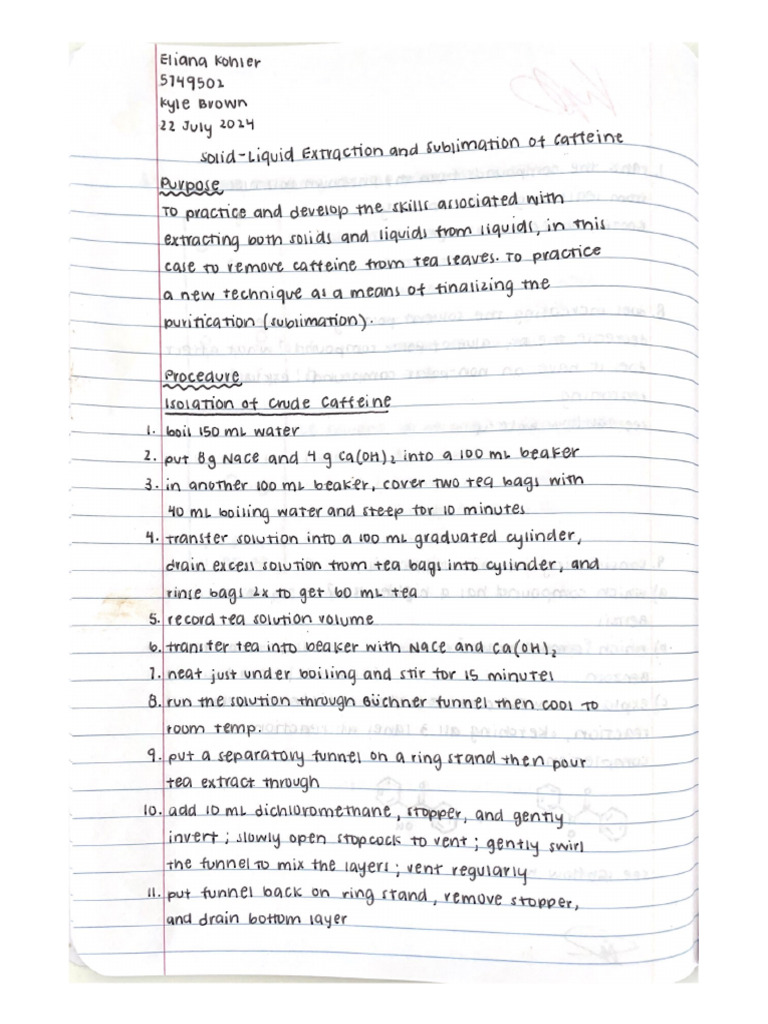 Eliana Kohler
5749502
Kyle Brown
22 July 2024
Solid-Liquid Extraction and Sublimation of Caffeine
Purpose
To practice and develop the skills associated with
extracting both solids and liquids from liquids, in this
case to remove caffeine from tea leaves. To practice
a new technique as a means of finalizing the
purification (sublimation).
Procedure
Isolation of Crude Caffeine
1. boil 150 mL water
2. put 8g NaCl and 4 g Ca(OH)₂ into a 100 mL beaker
3. in another 100 mL beaker, cover two tea bags with
40 mL boiling water and steep for 10 minutes
4. transfer solution into a 100 mL graduated cylinder,
drain excess solution from tea bags into cylinder, and
rinse bags 2x to get 60 mL tea
5. record tea solution volume
6. transfer tea into beaker with NaCl and Ca(OH)₂
7. heat just under boiling and stir for 15 minutes
8. run the solution through Büchner funnel then cool to
room temp.
9. put a separatory funnel on a ring stand then pour
tea extract through
10. add 10 mL dichloromethane, stopper, and gently
invert; slowly open stopcock to vent; gently swirl
the funnel to mix the layers; vent regularly
11. put funnel back on ring stand, remove stopper,
and drain bottom layer